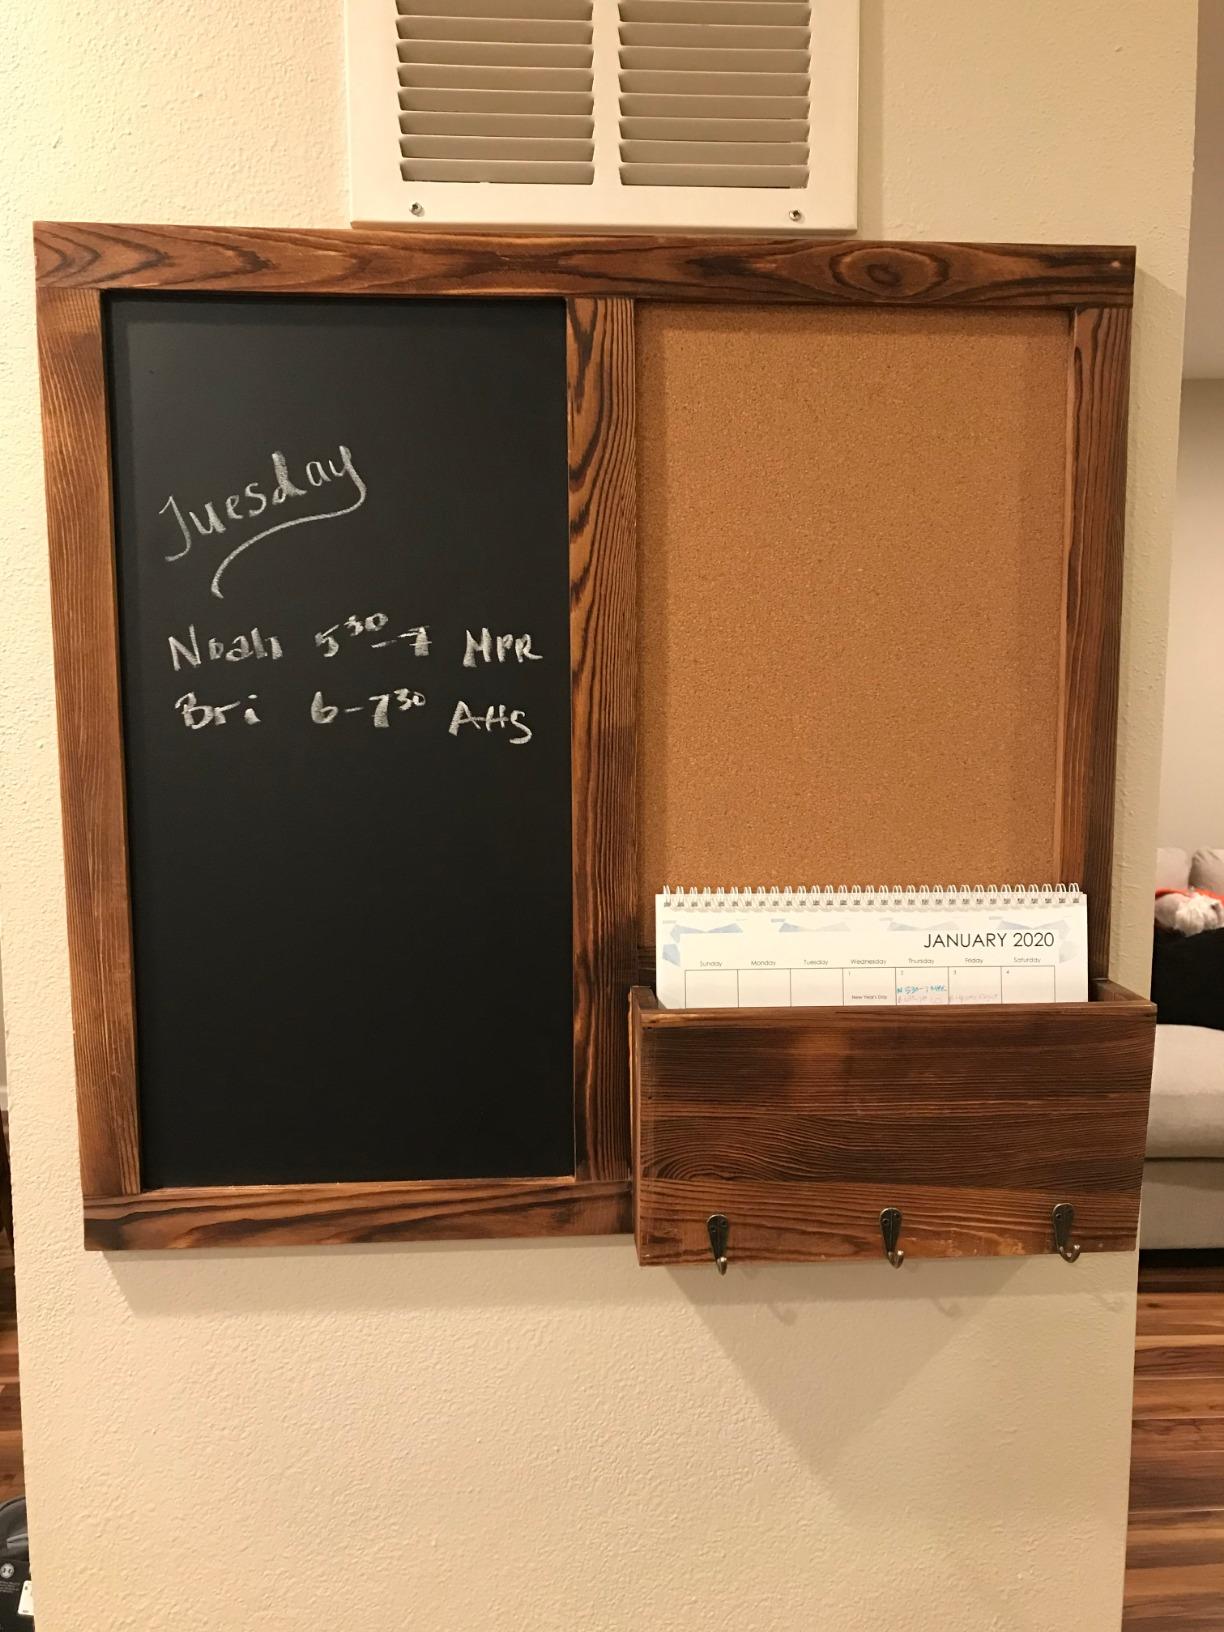 Tuesday
Noah 5³⁰-7 MPR
Bri 6-7³⁰ AHS
JANUARY 2020
Sunday Monday Tuesday Wednesday Thursday Friday Saturday
1 2 3 4
New Year's Day
N 5³⁰-7 MPR